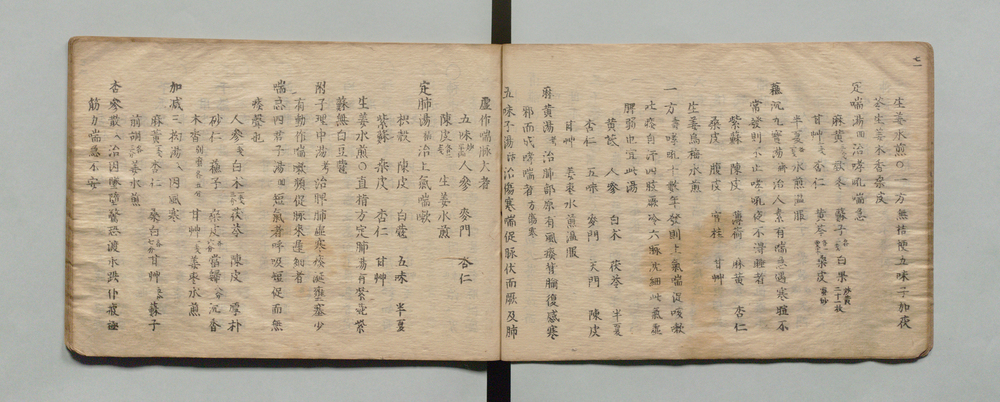 七一
生姜水煎○一方無桔梗五味子加茯
苓生姜木香桑皮
定喘湯 治哮吼喘急
麻黄 款冬 蘇子 白果 二十一枚
甘艸 杏仁 黄芩 桑皮
半夏 水煎温服
蘓沉九寳湯 治人素有喘急遇寒暄不
常發則不止哮吼夜不得睡者
紫蘇 陳皮 薄荷 麻黄 杏仁
桑皮 腹皮 官桂 甘艸
生姜烏梅水煎
一方 哮吼十数年發則上氣喘促咳嗽
吐痰自汗四肢厥冷六脉沉細此氣虚
脾弱也宜此湯
黄芪 人參 白朮 茯苓 半夏
杏仁 五味 麥門 天門 陳皮
甘艸 姜枣水煎温服
麻黄湯 治肺郭原有風痰背胸復感寒
邪而成哮喘者
五味子湯 治傷寒喘促脉伏而厥及肺
虚作喘脉大者
五味 人參 麥門 杏仁
陳皮 生姜水煎
定肺湯 治上氣喘嗽
枳殻 陳皮 白 五味 半夏
紫蘇 桑皮 杏仁 甘艸
生姜水煎○直指方定肺湯有紫菀紫
蘇無白豆
附子理中湯 治脾肺虚寒痰涎壅塞少
有動作喘嗽頻促脉來遅細者
喘急四君子湯 短氣者呼吸短促而無
痰聲也
人參 白朮 茯苓 陳皮 厚朴
砂仁 蘓子 桑皮 當歸 沉香
木香 甘艸 姜枣水煎
加减三拗湯 因感寒
麻黄 杏仁 桑白 甘艸 蘇子
前胡 姜水煎
杏 散 治因墜堕驚恐渡水跌仆疲極
筋力喘急不安